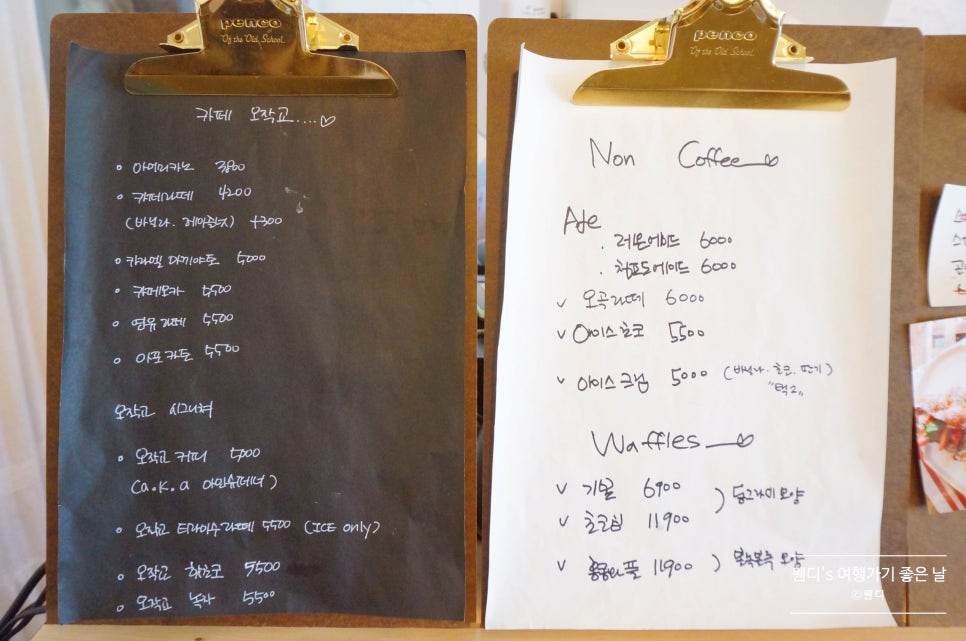 penco
"Of the Old School."
카페 오작교....♡
아메리카노 3800
카페라떼 4200
(바닐라. 헤이즐넛) +300
카라멜 마끼아또 5000
카페모카 5500
연유라떼 5500
아포카토 5500
오작교 시그니쳐
오작교 커피 5000
(a.k.a 아인슈페너)
오작교 티라미수라떼 5500 (ICE only)
오작교 핫초코 5500
오작교 녹차 5500
penco
"Of the Old School."
Non Coffee
Ade
· 레몬에이드 6000
· 청포도에이드 6000
v 오곡라떼 6000
v 아이스초코 5500
v 아이스크림 5000 (바닐라. 초코. 딸기)
"택2"
Waffles
v 기본 6900
v 초코칩 11900
) 동그라미 모양
v 11900 ) 모양
웬디's 여행가기 좋은 날
©웬디